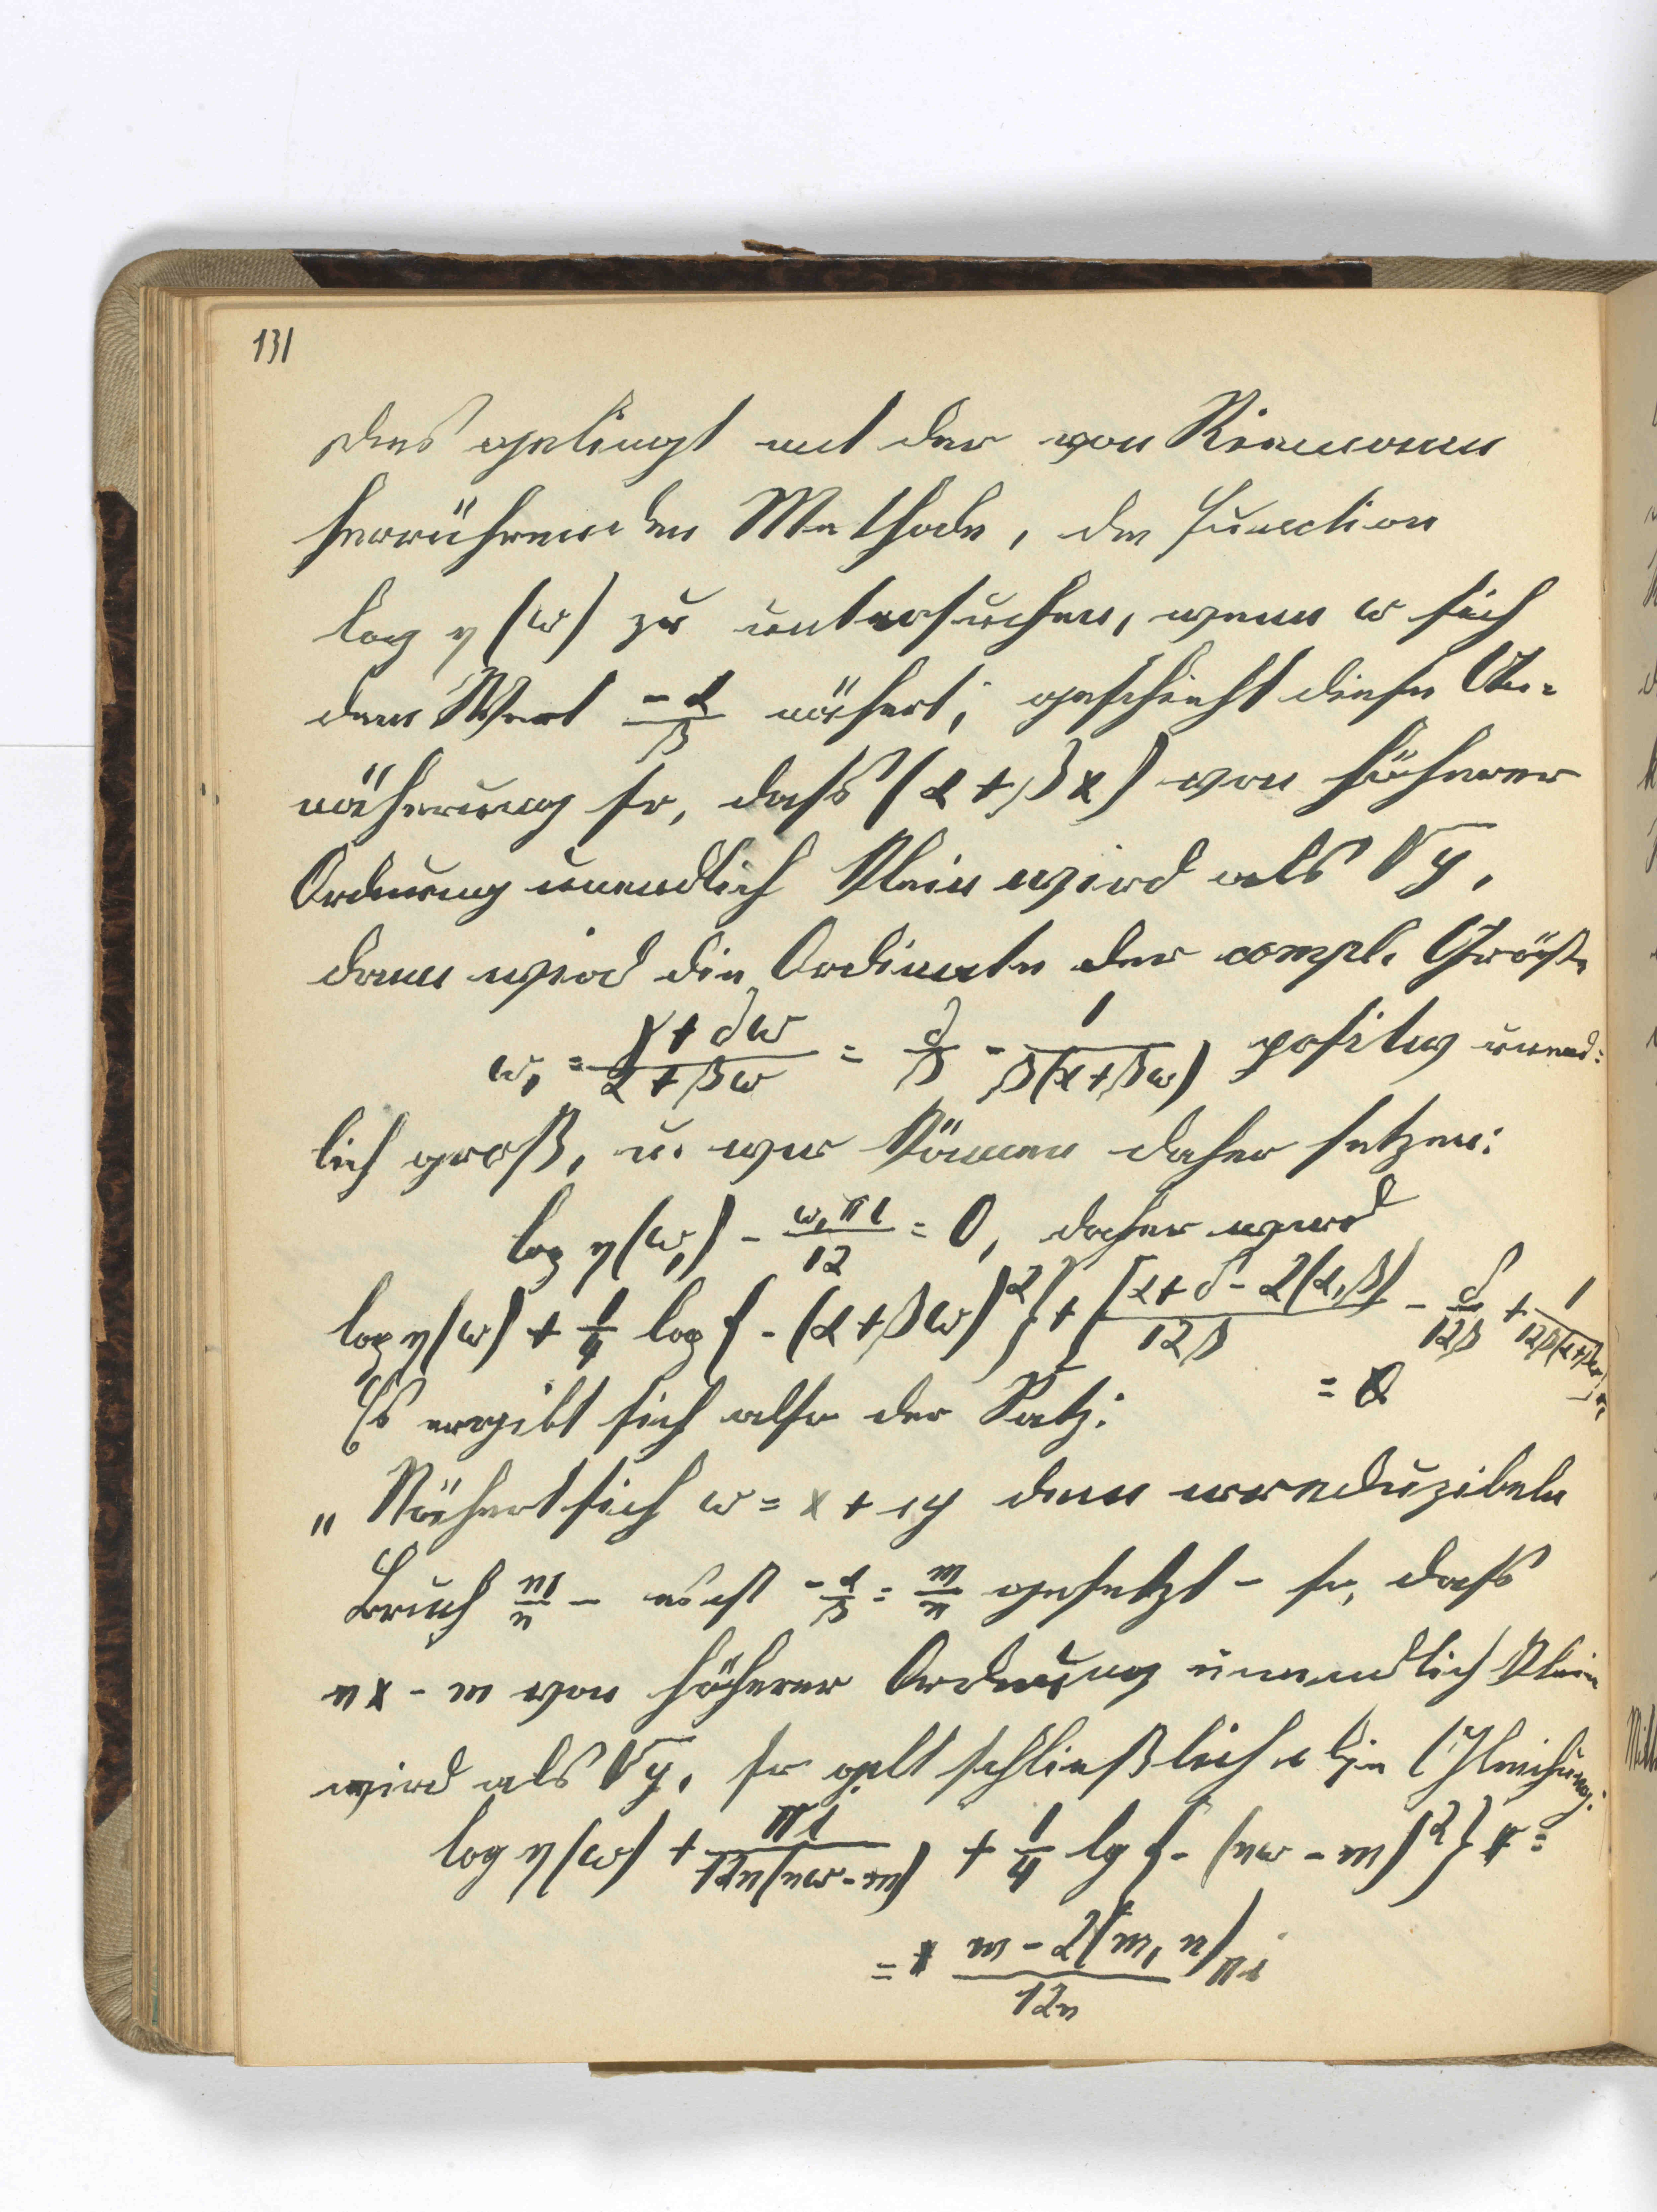 131
Dies gelingt mit der von Riemann
herrührenden Methode, die Function
log η(ω) zu untersuchen, wenn ω sich
dem Wert -α/β nähert; geschieht diese An=
näherung so, dass (α+βx) von höherer
Ordnung unendlich klein wird als √y,
dann wird die Ordinate der compl. Größe
ω₁ = (γ+δω)/(α+βω) = δ/β - 1/(β(α+βω)) positiv unend=
lich groß, u. wir können daher setzen:
log η(ω₁) - ω₁πi/12 = 0, daher wird
log η(ω) + 1/4 log{-(α+βω)²} + [(α+δ-2(α,β))/12β - δ/12β + 1/(12β(α+βω))]πi
= 0
Es ergibt sich also der Satz:
„Nähert sich ω = x + iy dem irreduzibeln
Bruch m/n - es ist -α/β = m/n gesetzt - so, dass
nx - m von höherer Ordnung unendlich klein
wird als √y, so gilt schließlich die Gleichung:
log η(ω) + πi/(12n(nω-m)) + 1/4 lg{-(nω-m)²} =
= (m - 2(m, n))/12n πi